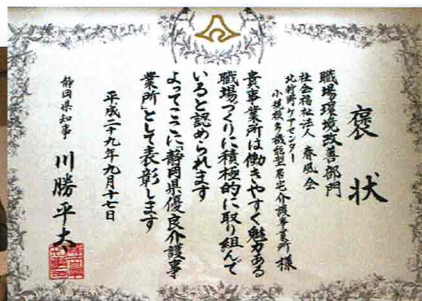 褒状
職場環境改善部門
社会福祉法人 春風会
小規模多機能型居宅介護事業所 様
貴事業所は働きやすく魅力ある
職場づくりに積極的に取り組んで
いると認められます
よってここに「静岡県優良介護事
業所」として表彰します
平成二十九年九月十七日
静岡県知事 川勝平太